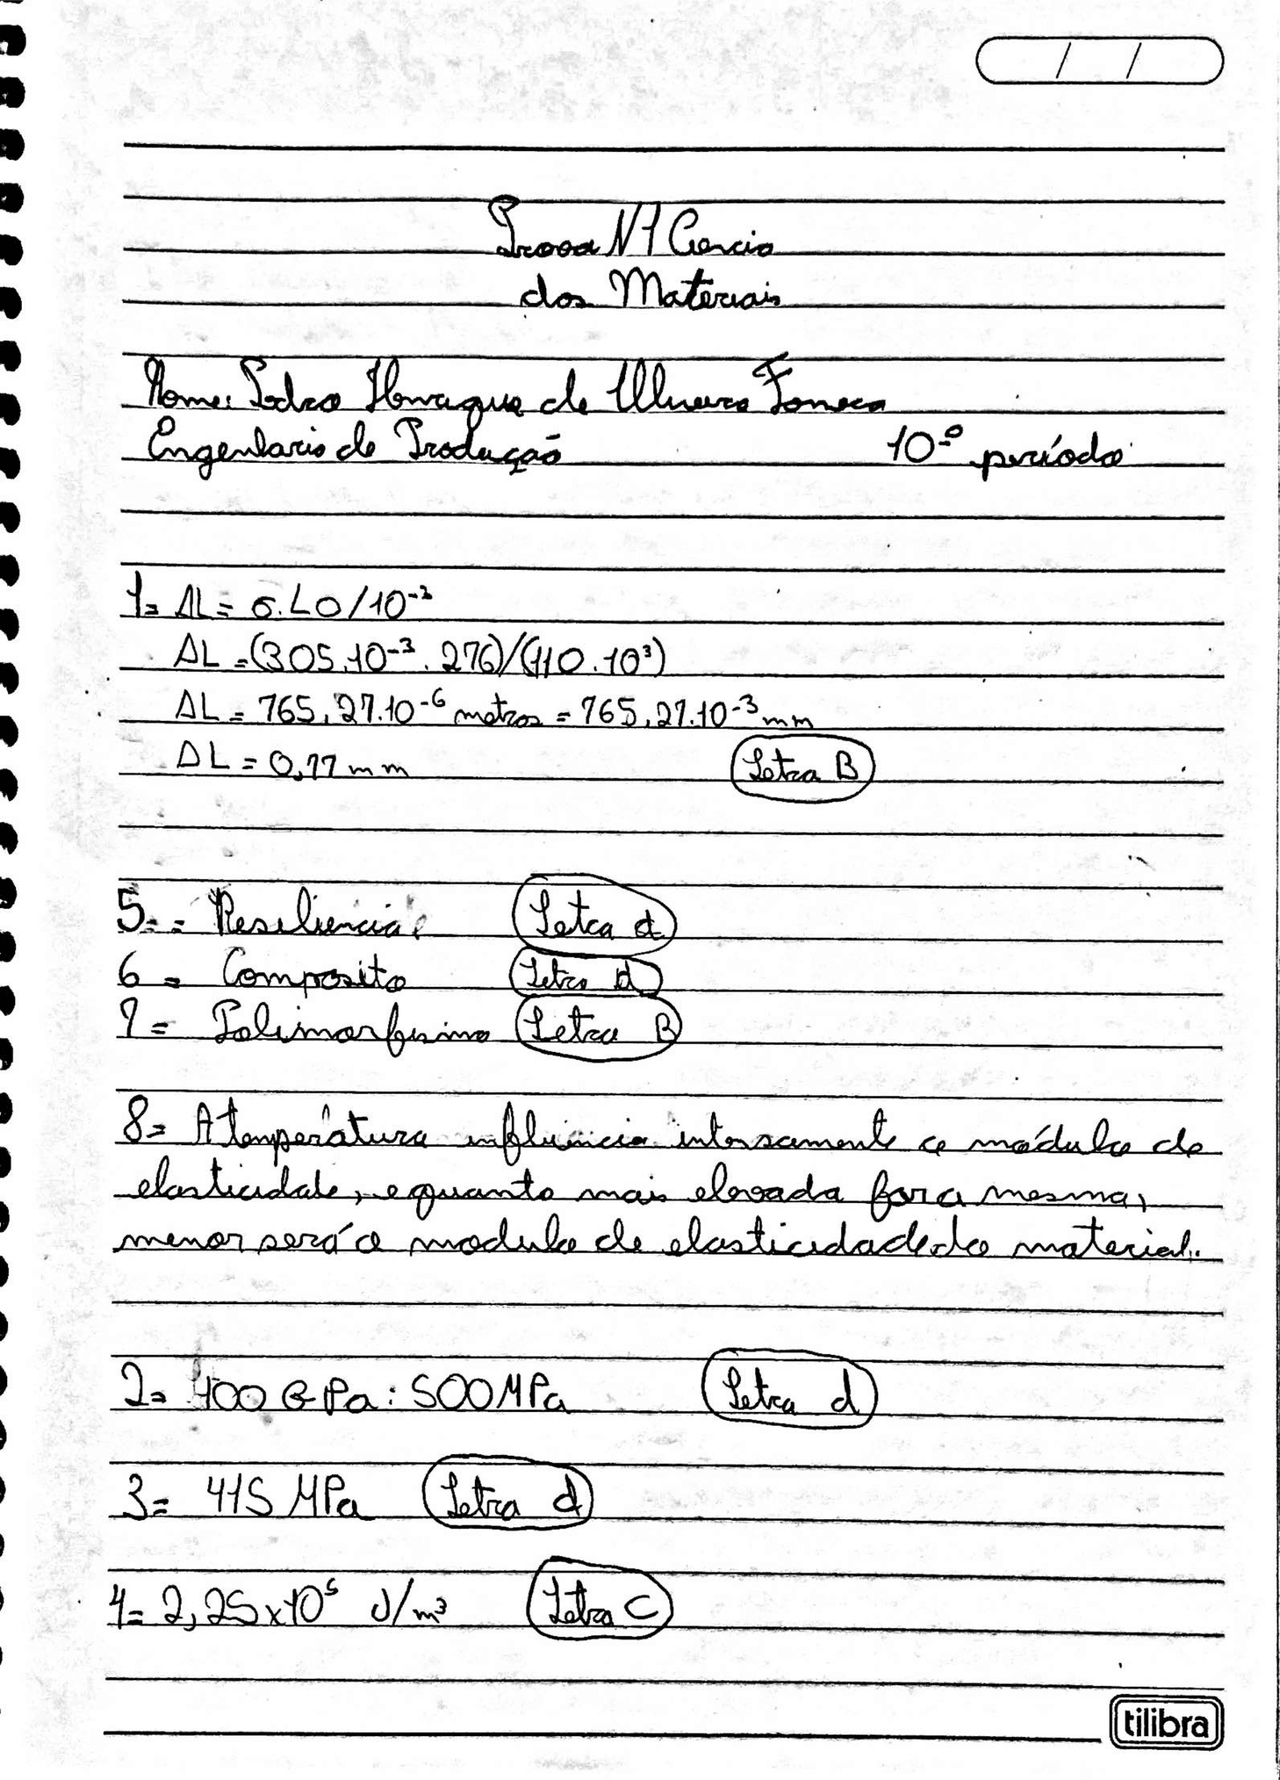 Prova N1 Ciencia
dos Materiais
Nome: Pedro Henrique de Oliveira Fonseca
Engenharia de Produção 10º período
1= ΔL = σ.L0/10⁻²
ΔL = (305.10⁻³.276)/(110.10³)
ΔL = 765,27.10⁻⁶ metros = 765,27.10⁻³ mm
ΔL = 0,77 mm Letra B
5= Resiliencia Letra d
6= Composito Letra d
7= Polimorfismo Letra B
8= A temperatura influência intensamente o módulo de
elasticidade, e quanto mais elevada for a mesma,
menor será o modulo de elasticidade do material.
2= 100 GPa : 500 MPa Letra d
3= 415 MPa Letra d
4= 2,25x10⁵ J/m³ Letra C
tilibra